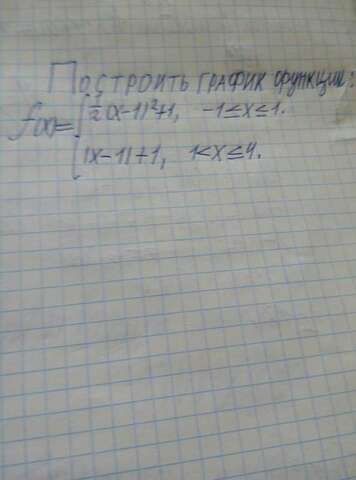 Построить график функции:
f(x)= { 1/2(x-1)²+1, -1≤x≤1.
|x-1|+1, 1<x≤4.